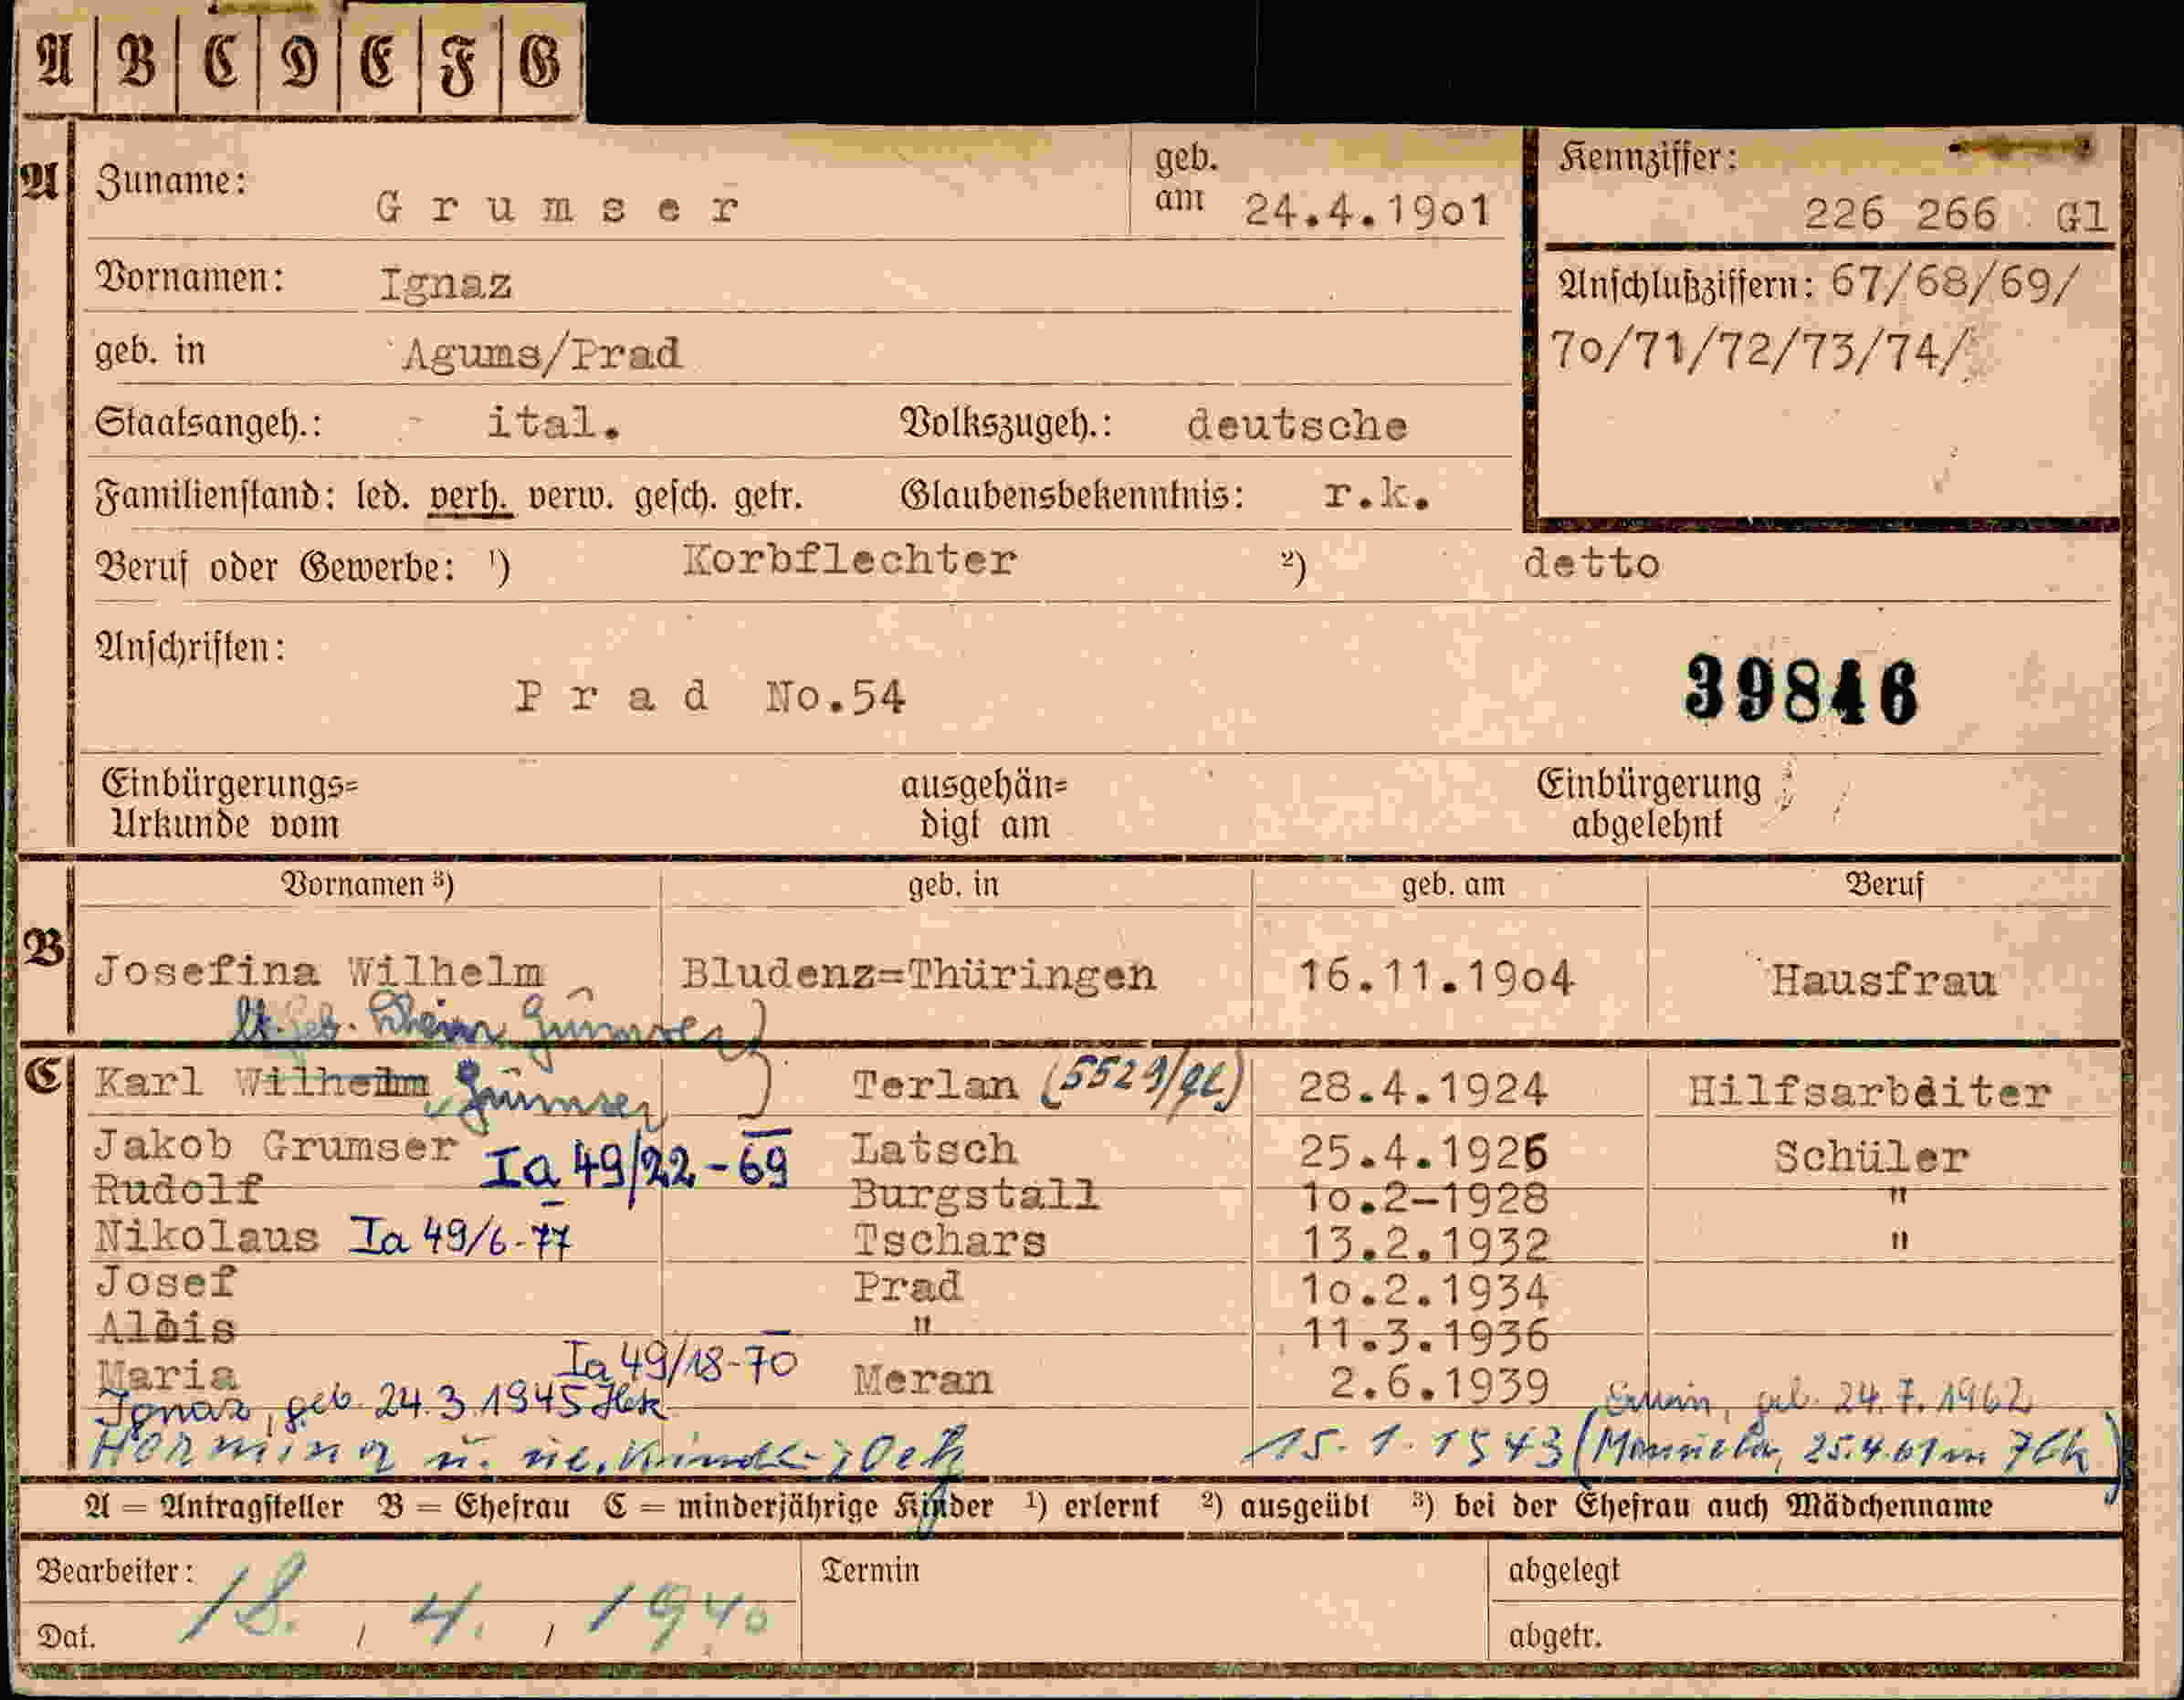 A B C D E F G
A Zuname: Grumser geb. am 24.4.1901 Kennziffer: 226 266 Gl
Vornamen: Ignaz Anschlußziffern: 67/68/69/
geb. in Agums/Prad 70/71/72/73/74/
Staatsangeh.: ital. Volkszugeh.: deutsche
Familienstand: led. verh. verw. gesch. getr. Glaubensbekenntnis: r.k.
Beruf oder Gewerbe: 1) Korbflechter 2) detto
Anschriften:
Prad No.54 39846
Einbürgerungs= ausgehän= Einbürgerung
Urkunde vom digt am abgelehnt
Vornamen 3) geb. in geb. am Beruf
B Josefina Wilhelm Bludenz=Thüringen 16.11.1904 Hausfrau
C Karl Wilhelm Grumser Terlan (5529/Gl) 28.4.1924 Hilfsarbeiter
Jakob Grumser Ia 49/22-69 Latsch 25.4.1926 Schüler
Rudolf Burgstall 10.2-1928 "
Nikolaus Ia 49/6-77 Tschars 13.2.1932 "
Josef Prad 10.2.1934
Alois " 11.3.1936
Maria Ia 49/18-70 Meran 2.6.1939
Ignaz, geb. 24.3.1945 Erwin, geb. 24.7.1962
15.1.1943
A = Antragsteller B = Ehefrau C = minderjährige Kinder 1) erlernt 2) ausgeübt 3) bei der Ehefrau auch Mädchenname
Bearbeiter: Termin abgelegt
Dat. 18. / 4. / 1940 abgetr.